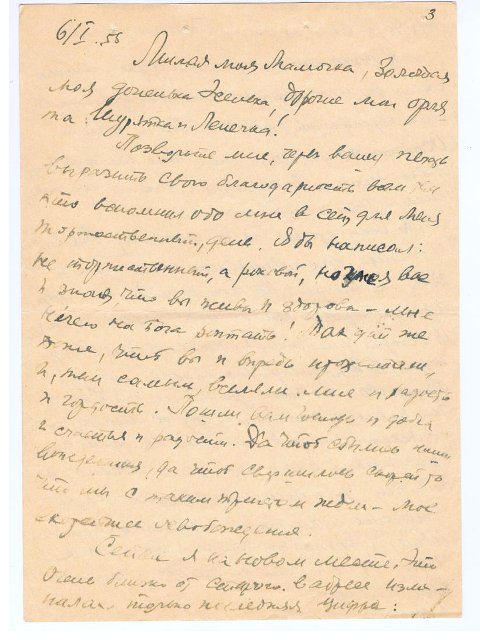 3
6/I.56
Милая моя Мамочка, Золотая
моя доченька Эленка, дорогие мои
та Шурятка и Ленечка!
Позвольте мне, через
выразить свою благодарность вам
что вспомнили обо мне в сей для меня
торжественный день. Я бы написал:
не торжественный, а роковой, но зная вас
и зная, что вы живы и здоровы – мне
нечего на Бога роптать! Так дай же
Боже, чтоб вы и впредь
и, тем самым, вселяли мне и радость
и гордость. Пошли вам Господь и добра
и счастья и радости. Да чтоб сбылись наши
да чтоб свершилось скорей то
что мы с таким трепетом ждем – мое
скорейшее освобождения.
Сейчас я на новом месте. Это
очень близко от старого. В адресе изме-
нилась только последняя цифра: